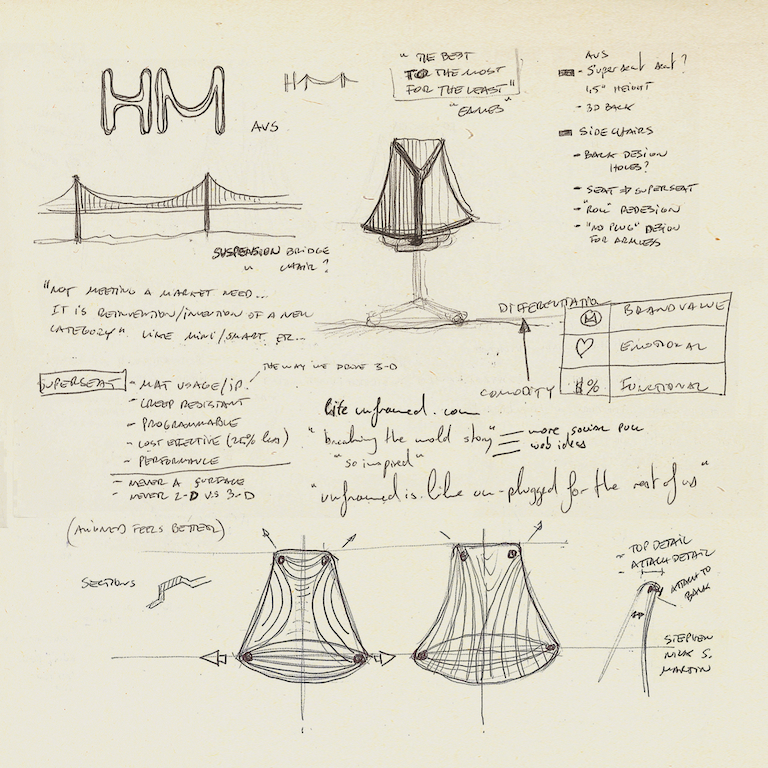 HM
AVS
HM
"THE BEST
FOR THE MOST
FOR THE LEAST"
"EAMES"
AVS
- Superseat seat?
1.5" HEIGHT
- 3D BACK
SIDE CHAIRS
- BACK DESIGN
HOLES?
- SEAT ⇒ SUPERSEAT
- "ROLL" REDESIGN
- "NO PLUG" DESIGN
FOR ARMLESS
SUSPENSION BRIDGE
CHAIR?
"NOT MEETING A MARKET NEED...
IT IS REINVENTION/INVENTION OF A NEW
CATEGORY" LIKE MINI/SMART, ETC...
DIFFERENTIATION
COMODITY
M BRAND VALUE
♡ EMOTIONAL
$% FUNCTIONAL
THE WAY WE DROVE 3-D
SUPERSEAT
- MAT USAGE/IP.
- CREEP RESISTANT
- PROGRAMMABLE
- COST EFFECTIVE (25% less)
- PERFORMANCE
- NEVER A SURFACE
- NEVER 2-D V.S 3-D
(ALIGNED FEELS BETTER)
life unframed.com
"breaking the mold story"
more social pull
web ideas
"so inspired"
"unframed is like un-plugged for the rest of us"
SECTIONS
- TOP DETAIL
- ATTACH DETAIL
ATTACH TO
BACK
STEPHEN
NICK S.
MARTIN